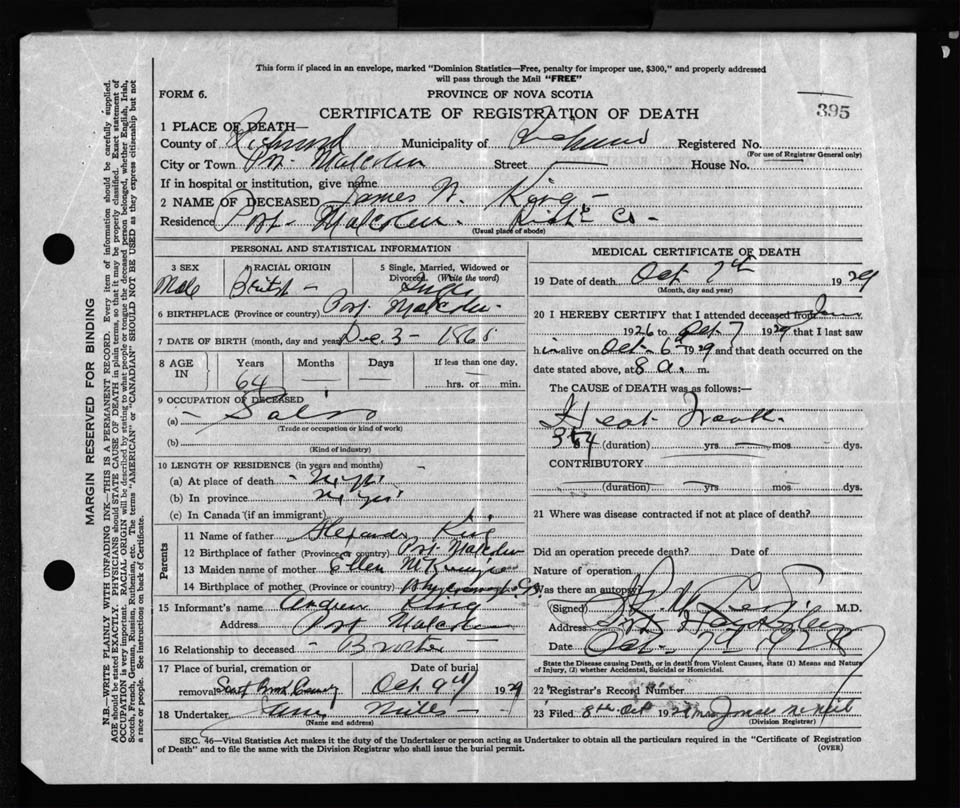 This form if placed in an envelope, marked "Dominion Statistics—Free, penalty for improper use, $300," and properly addressed
will pass through the Mail "FREE"
FORM 6.
PROVINCE OF NOVA SCOTIA
395
CERTIFICATE OF REGISTRATION OF DEATH
1 PLACE OF DEATH—
County of Richmond Municipality of Richmond Registered No.
(For use of Registrar General only)
City or Town Port Malcolm Street House No.
If in hospital or institution, give name
2 NAME OF DECEASED James W. King
Residence Port Malcolm. Rich. Co
(Usual place of abode)
PERSONAL AND STATISTICAL INFORMATION
3 SEX 4 RACIAL ORIGIN 5 Single, Married, Widowed or Divorced. (Write the word)
Male British Single
6 BIRTHPLACE (Province or country) Port Malcolm
7 DATE OF BIRTH (month, day and year) Dec. 3 - 1865
8 AGE IN Years Months Days If less than one day,
64 hrs. or min.
9 OCCUPATION OF DECEASED
(a) Sailor
(Trade or occupation or kind of work)
(b)
(Kind of industry)
10 LENGTH OF RESIDENCE (in years and months)
(a) At place of death
(b) In province
(c) In Canada (if an immigrant)
Parents
11 Name of father Alexander King
12 Birthplace of father (Province or country) Port Malcolm
13 Maiden name of mother Ellen McKenzie
14 Birthplace of mother (Province or country)
15 Informant's name Andrew King
Address Port Malcolm
16 Relationship to deceased Brother
17 Place of burial, cremation or Date of burial
removal Oct. 9th 1929
18 Undertaker
(Name and address)
MEDICAL CERTIFICATE OF DEATH
19 Date of death Oct 7th 1929
(Month, day and year)
20 I HEREBY CERTIFY that I attended deceased from
1926 to Oct. 7 1929 that I last saw
him alive on Oct. 6 1929 and that death occurred on the
date stated above, at 8 a. m.
The CAUSE OF DEATH was as follows:—
Heart
(duration) yrs mos dys.
CONTRIBUTORY
(duration) yrs mos dys.
21 Where was disease contracted if not at place of death?
Did an operation precede death? Date of
Nature of operation
Was there an autopsy?
(Signed) M.D.
Address
Date Oct.
State the Disease causing Death, or in death from Violent Causes, state (1) Means and Nature
of Injury, (2) whether Accidental, Suicidal or Homicidal.
22 Registrar's Record Number
23 Filed 8th Oct 1929 Mrs James
(Division Registrar)
SEC. 46—Vital Statistics Act makes it the duty of the Undertaker or person acting as Undertaker to obtain all the particulars required in the "Certificate of Registration
of Death" and to file the same with the Division Registrar who shall issue the burial permit.
(OVER)
MARGIN RESERVED FOR BINDING
N.B.—WRITE PLAINLY WITH UNFADING INK—THIS IS A PERMANENT RECORD. Every item of information should be carefully supplied.
AGE should be stated EXACTLY. PHYSICIANS should STATE CAUSE OF DEATH in plain terms, so that it may be properly classified. Exact statement of
OCCUPATION is very important. RACIAL ORIGIN will be described by stating to what people or tongue the deceased person belonged, whether English, Irish,
Scotch, French, German, Russian, Ruthenian, etc. The terms "AMERICAN" or "CANADIAN" SHOULD NOT BE USED as they express citizenship but not
a race or people. See instructions on back of Certificate.